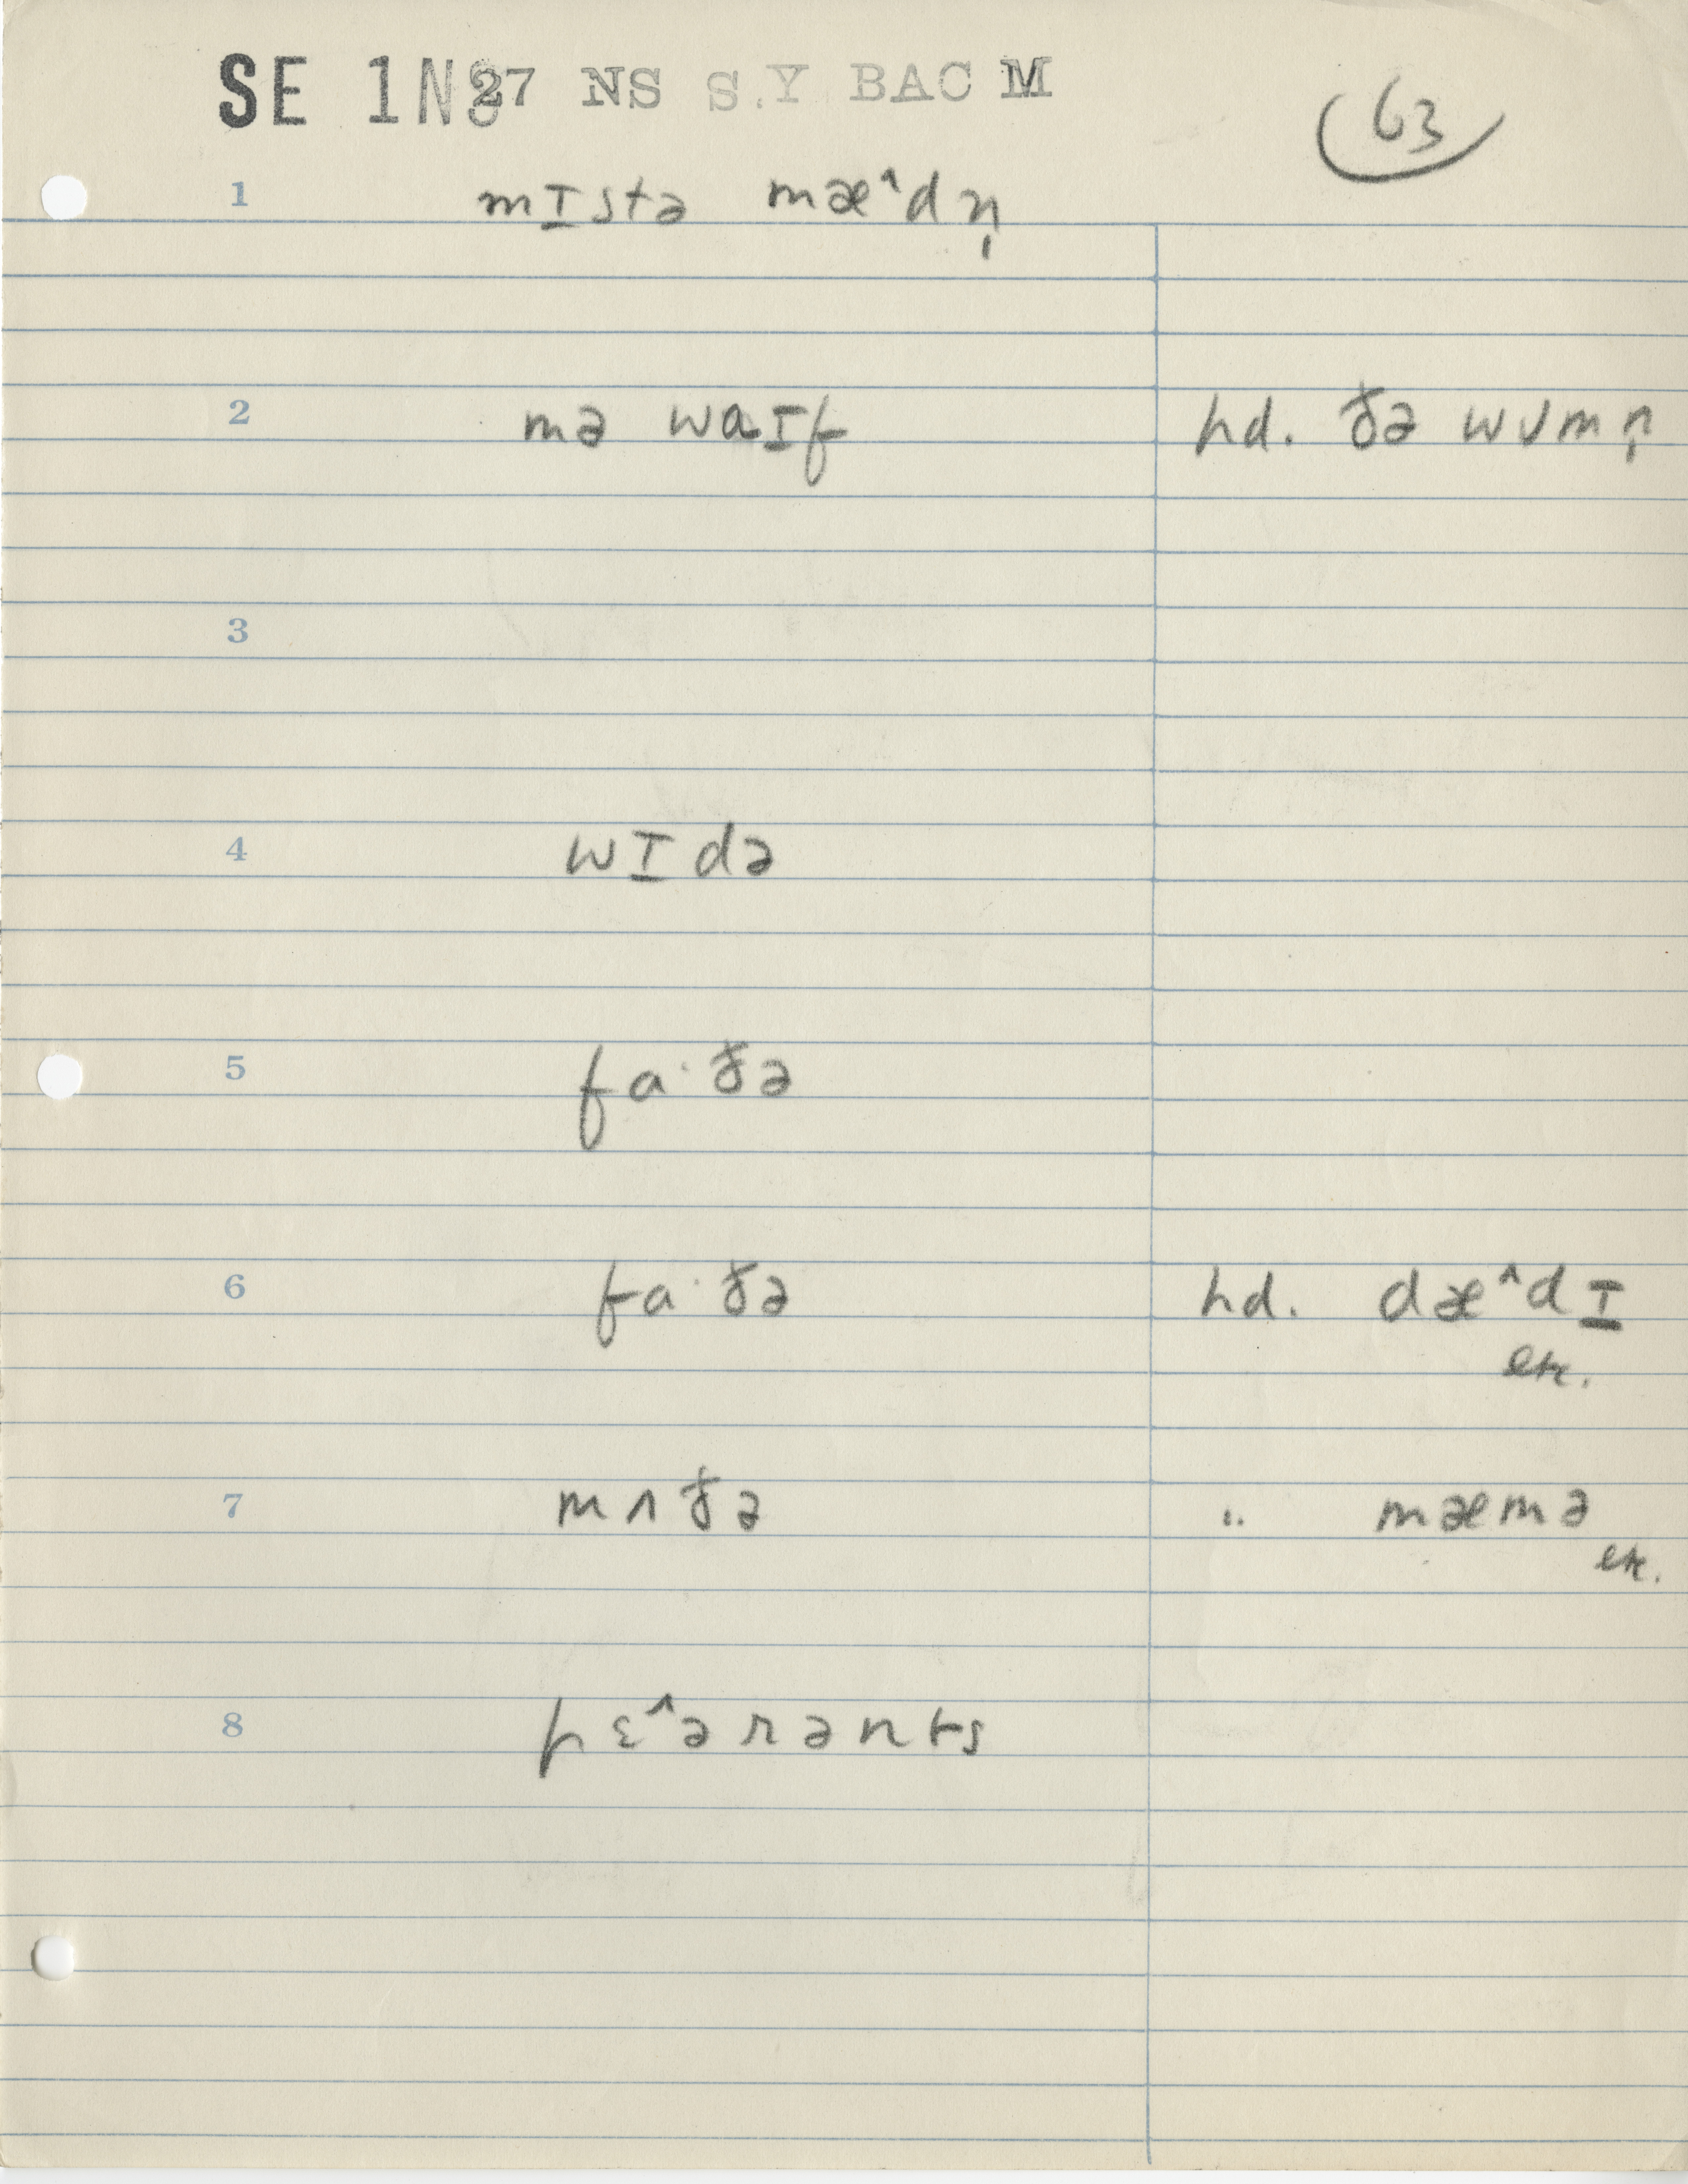 SE 1NS27 NS S.Y BAC M
63
1 mɪstə mæ^dn̩
2 mə waɪf hd. ðə wʊmn̩
3
4 wɪdə
5 fa·ðə
6 fa·ðə hd. dæ^dɪ
etc.
7 mʌðə " mæmə
etc.
8 pɛ^ərənts